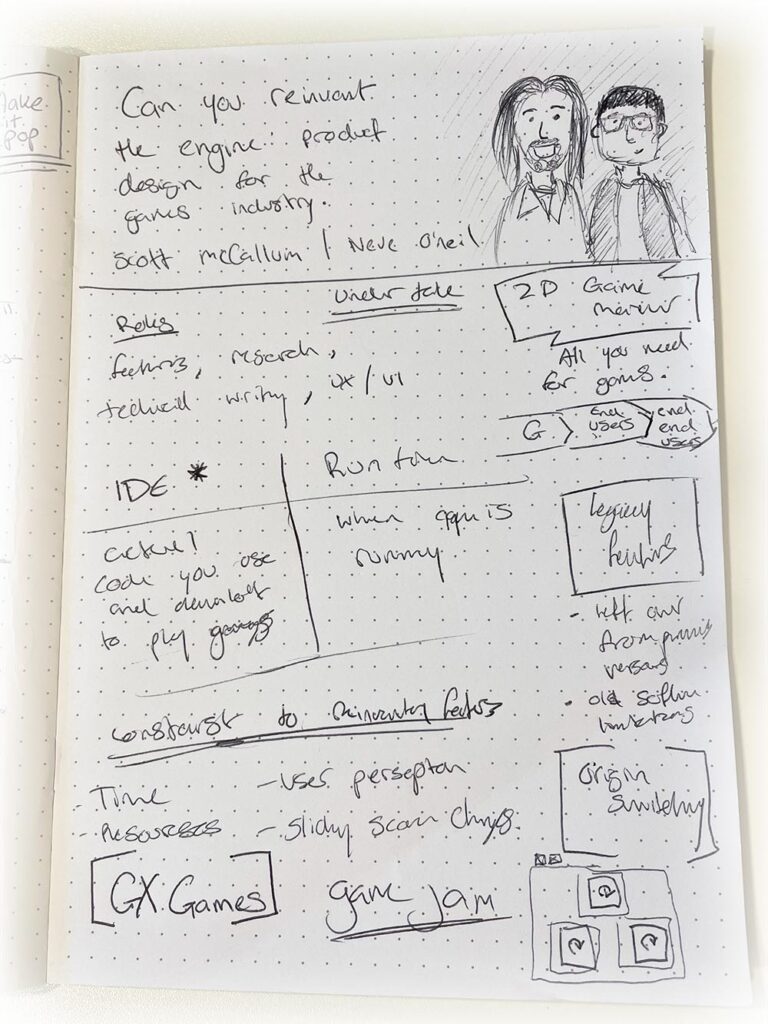 Make
it
pop
Can you reinvant
the engine product
design for the
games industry.
Scott McCallum / Neve O'neil
Undertale
2D Game
All you need
for games.
G
End
users
end
end
users
Roles
features, research,
technical writing, UX / UI
IDE *
actual
code you use
and
to play
Run time
when game is
running
legacy
features
- left over
from
versions
- old software
limitations
to reinventing features
- Time
- Resources
- User
- sliding scale
Origin
GX.Games
game jam